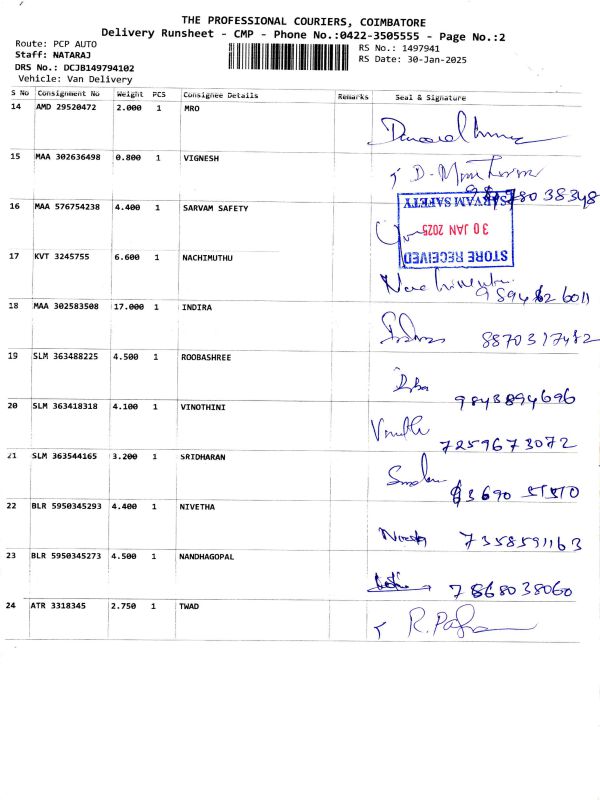 THE PROFESSIONAL COURIERS, COIMBATORE
Delivery Runsheet - CMP - Phone No.:0422-3505555 - Page No.:2
Route: PCP AUTO
Staff: NATARAJ
DRS No.: DCJB149794102
Vehicle: Van Delivery
RS No.: 1497941
RS Date: 30-Jan-2025
S No Consignment No Weight PCS Consignee Details Remarks Seal & Signature
14 AMD 29520472 2.000 1 MRO
15 MAA 302636498 0.800 1 VIGNESH
16 MAA 576754238 4.400 1 SARVAM SAFETY
STORE RECEIVED
30 JAN 2025
17 KVT 3245755 6.600 1 NACHIMUTHU
18 MAA 302583508 17.000 1 INDIRA
8870317412
19 SLM 363488225 4.500 1 ROOBASHREE
9843894696
20 SLM 363418318 4.100 1 VINOTHINI
7259673072
21 SLM 363544165 3.200 1 SRIDHARAN
22 BLR 5950345293 4.400 1 NIVETHA
7358591163
23 BLR 5950345273 4.500 1 NANDHAGOPAL
7868038060
24 ATR 3318345 2.750 1 TWAD